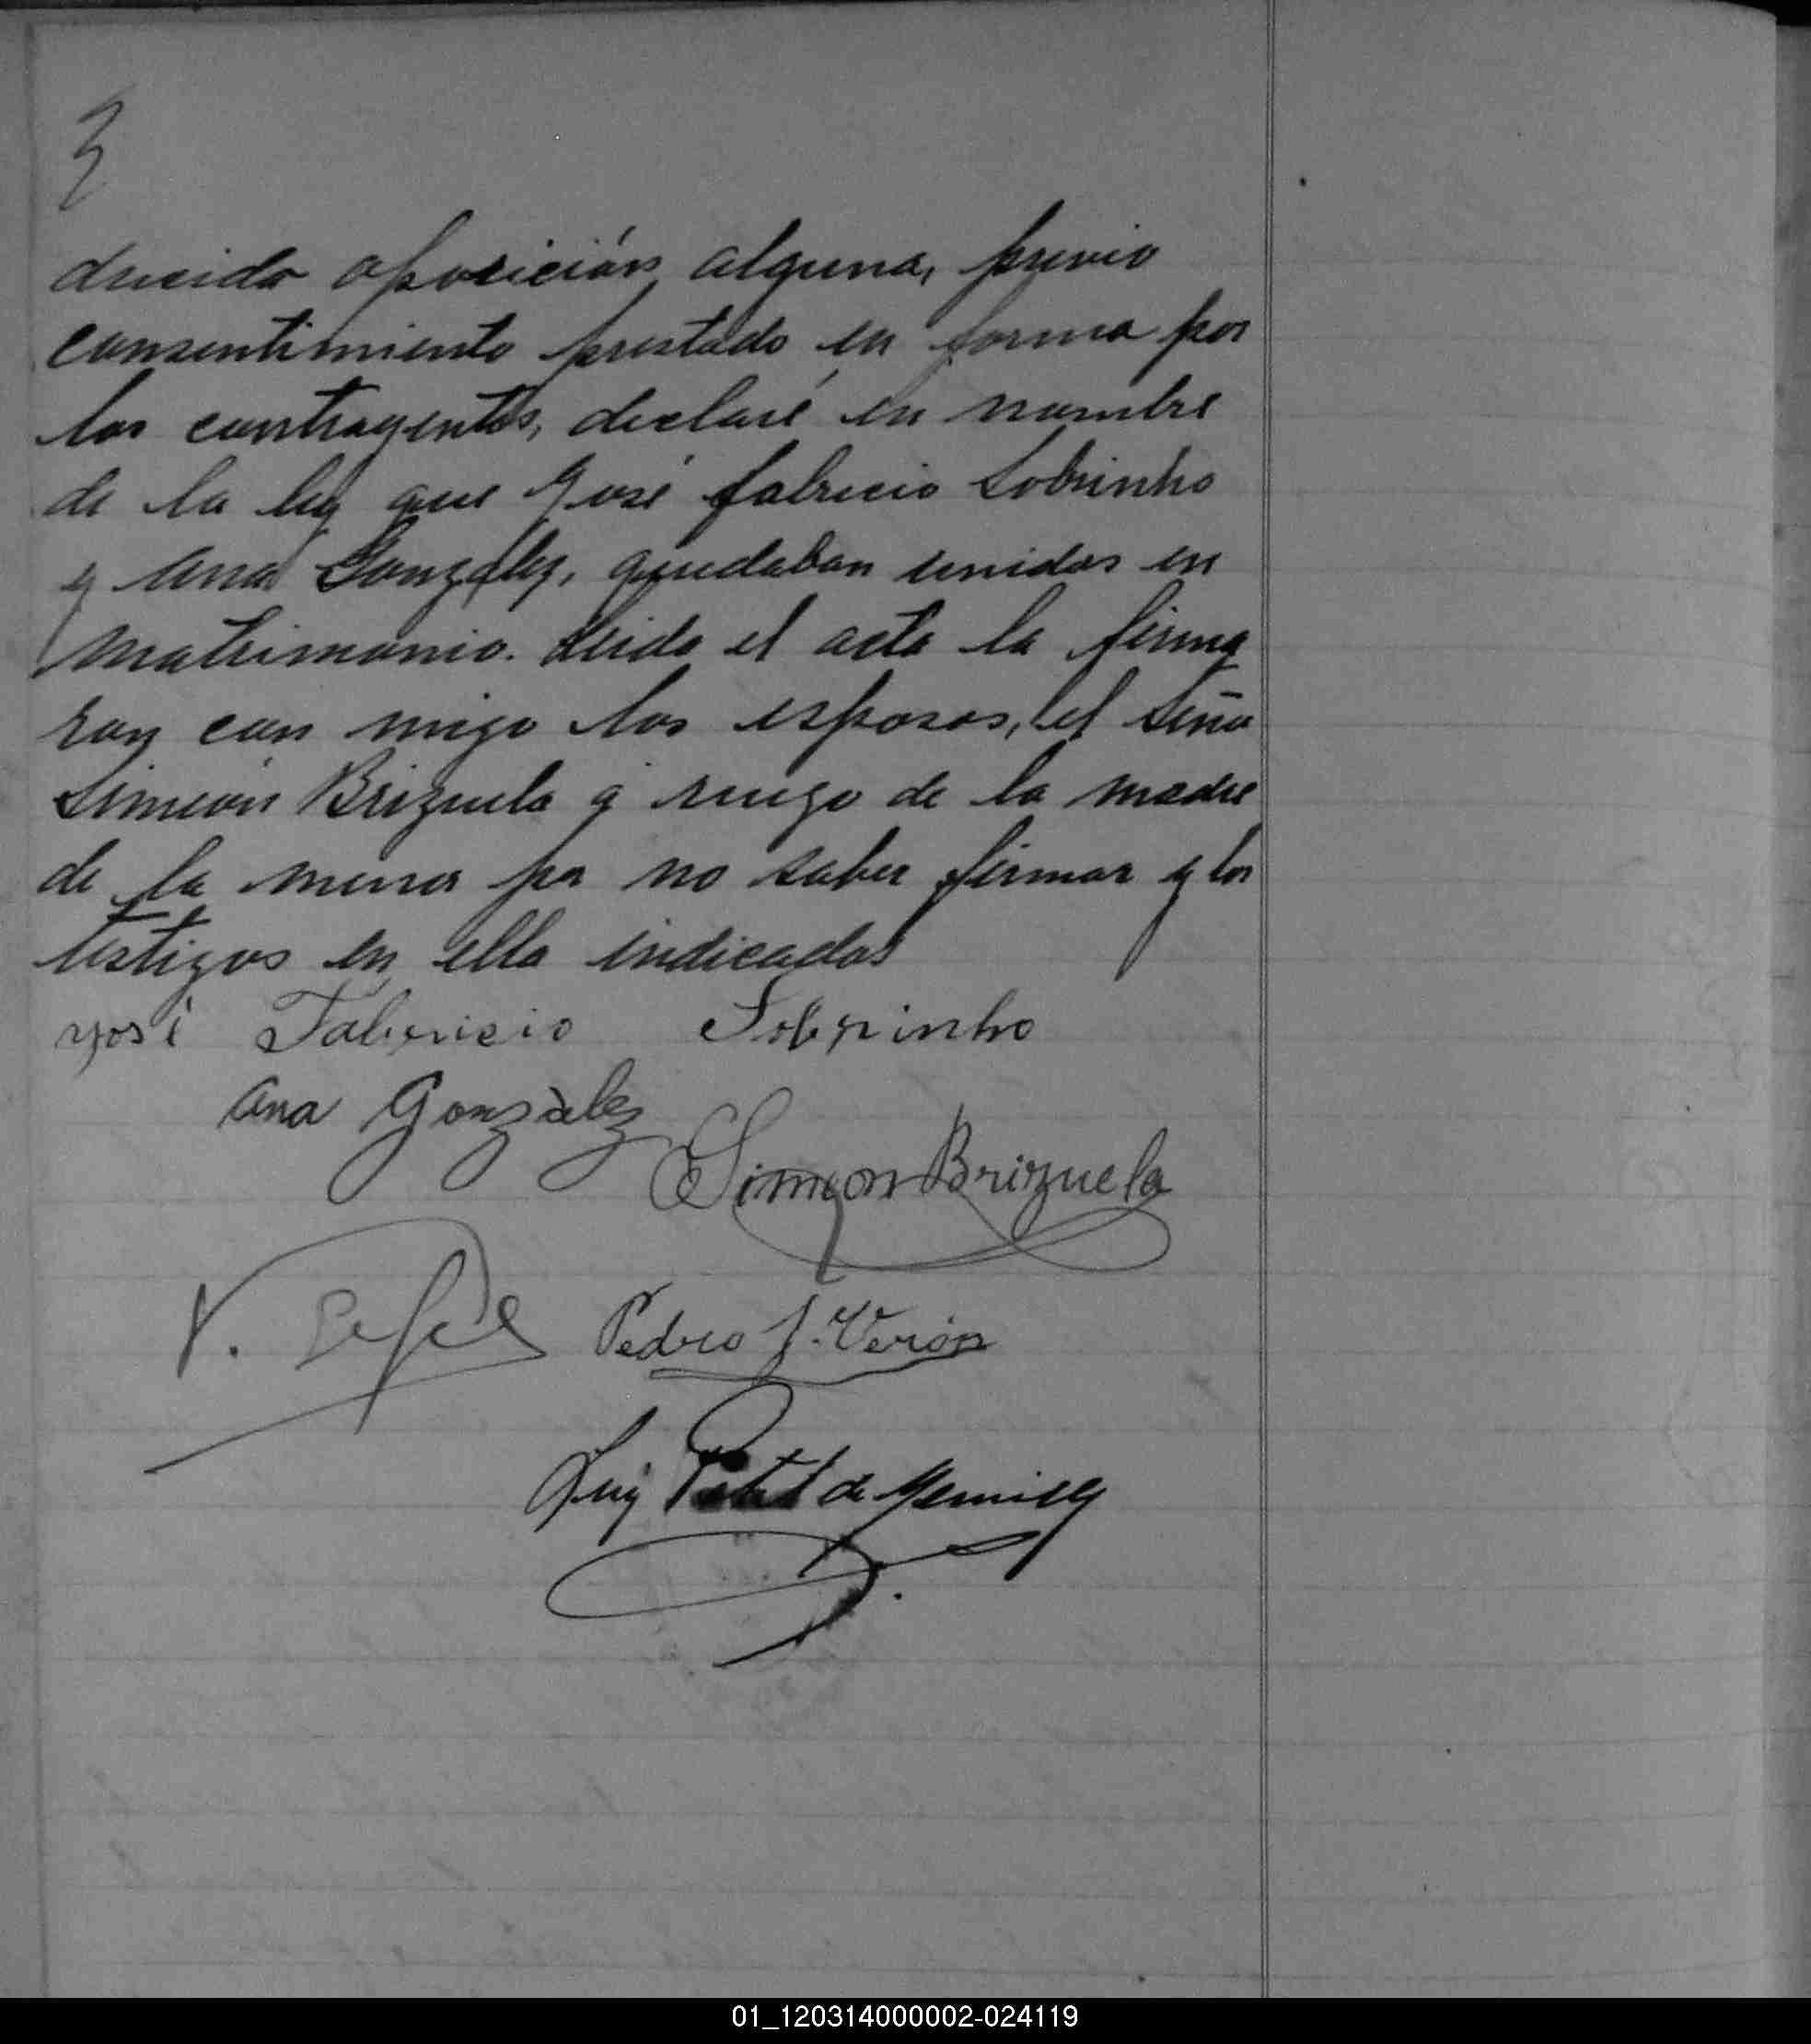 3
ducido oposición alguna, previo
consentimiento prestado en forma por
los contrayentes, declaré en nombre
de la ley que José Fabricio Sobrinho
y Ana Gonzalez, quedaban unidos en
matrimonio. Leida el acta la firma
ron con migo los esposos, el Seño
Simeón Brizuela a ruego de la madre
de la menor por no saber firmar y los
testigos en ella indicados
José Fabricio Sobrinho
Ana Gonzàlez
Simeon Brizuela
V.
Pedro J. Verón
Luis Petit de
01_120314000002-024119